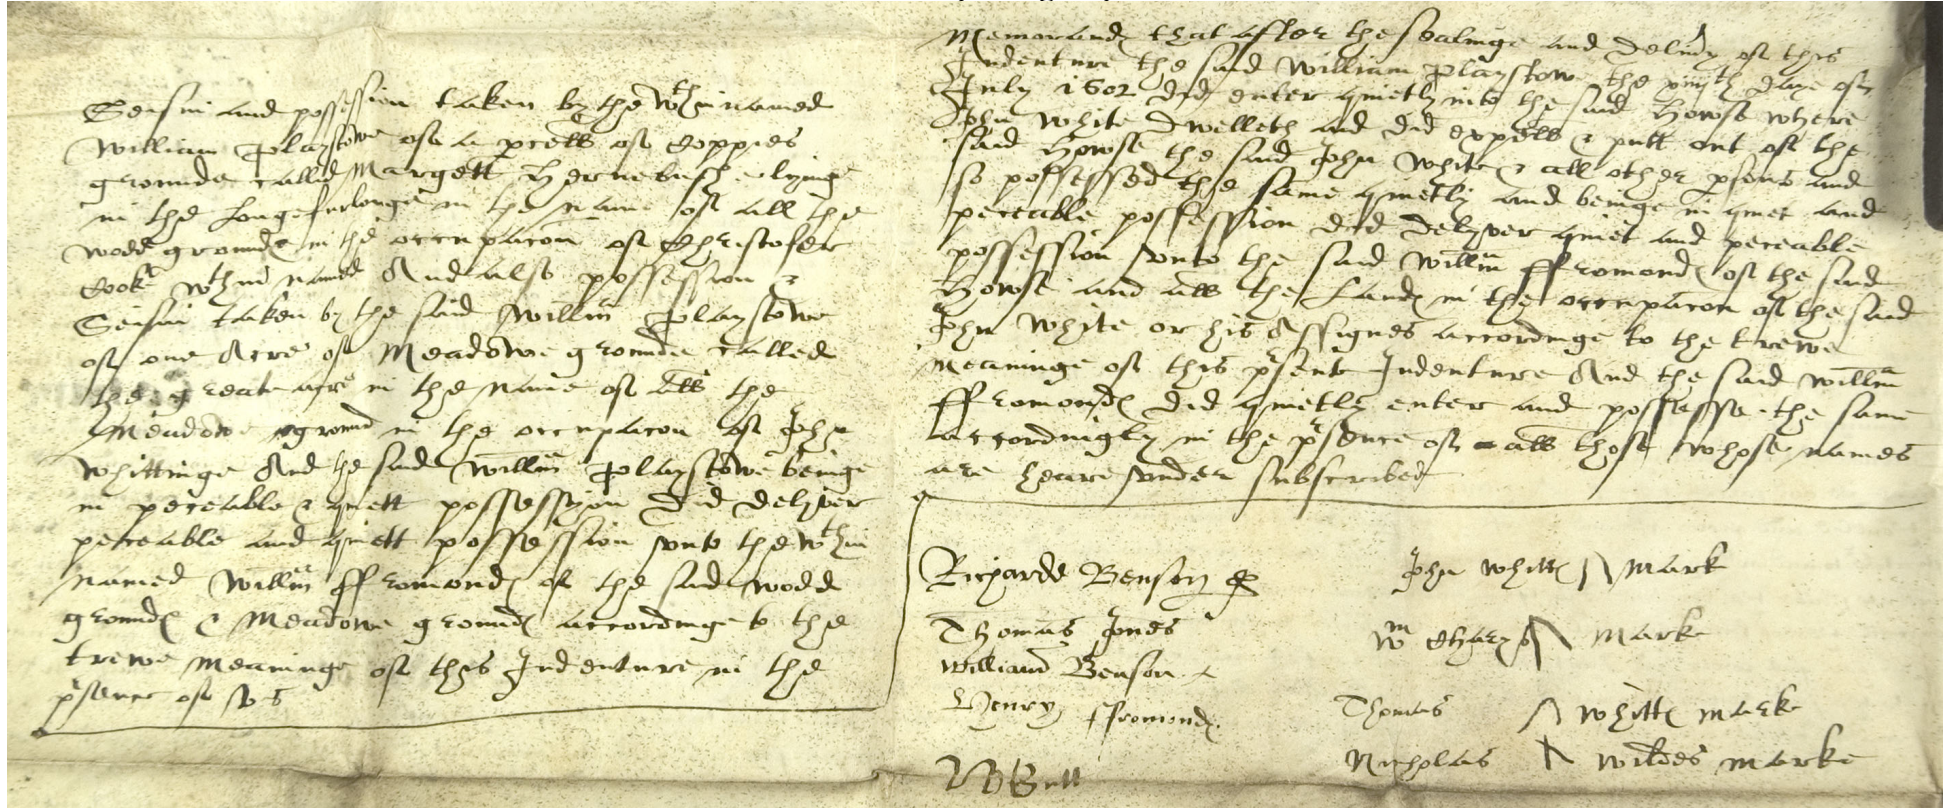 Seisin and possession taken by the wthin named
William Playstowe of a pcell of Coppies
grounde called Margett Hernebusshe lyinge
in the Longefurlonge in the name of all the
wodd grounde in the occupacon of Christofer
Cooke wthin named And also possession &
Seisin taken by the said Willm Playstowe
of one Acre of Meadowe grounde called
the greate acre in the name of all the
Meadowe ground in the occupacon of John
Whittinge And the said Willm Playstowe beinge
in peceable & quiett possessyon did delyver
peceable and quiett possession vnto the wthin
named Willm ffromond of the said wodd
ground & Meadowe ground accordinge to the
trewe meaninge of this Indenture in the
psence of vs
Memorand that after the sealinge and delivy of this
Indenture the said William Playstowe the daye of
July 1602 did enter quietly into the said Howse where
John White dwelleth and did expell & putt out of the
said Howse the said John White & all other psons and
so possessed the same quietly and beinge in quiet and
peceable possession did delyver quiet and peceable
possession vnto the said Willm ffromond of the said
Howse and all the Land in the occupacon of the said
John White or his Assignes accordinge to the trewe
meaninge of this psente Indenture And the said Willm
ffromond did quietly enter and possesse the same
accordingly in the psence of all those whose names
are heare vnder subscribed
Richarde Benson
Thomas Jones
William Benson
Henry ffromond
John Whitt mark
Wm mark
Thomas Whitt marke
Nicholas Wildes marke